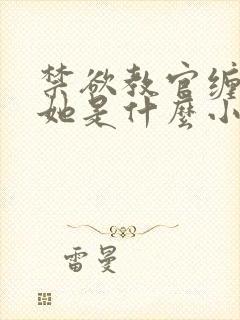 禁欲教官缠
她是什麼小
雷曼